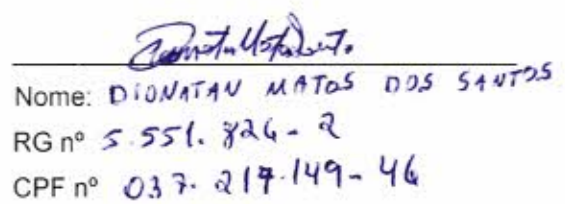 Nome: DIONATAN MATOS DOS SANTOS
RG nº 5.551.824-2
CPF nº 037.217.149-46